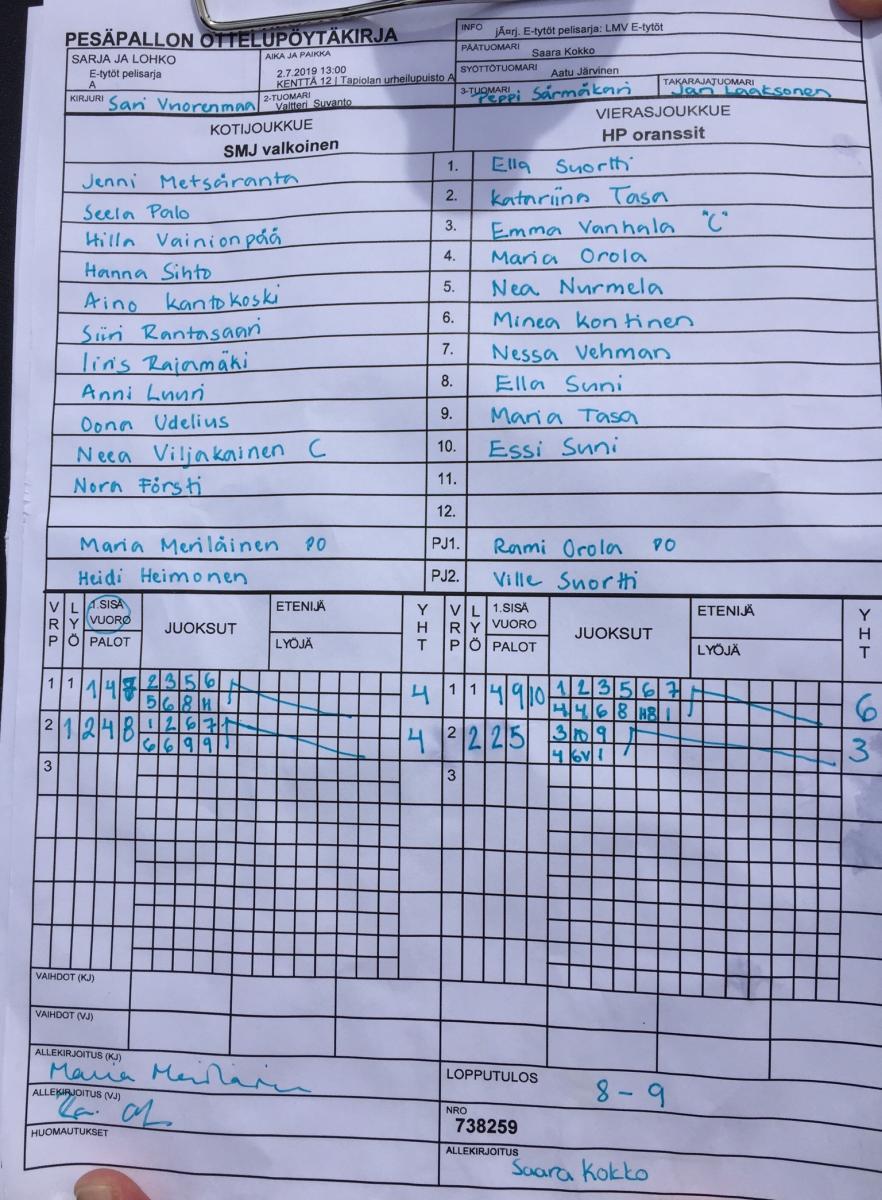 PESÄPALLON OTTELUPÖYTÄKIRJA
INFO jÃ¤rj. E-tytöt pelisarja: LMV E-tytöt
SARJA JA LOHKO
E-tytöt pelisarja
A
AIKA JA PAIKKA
2.7.2019 13:00
KENTTÄ 12 | Tapiolan urheilupuisto A
PÄÄTUOMARI Saara Kokko
SYÖTTÖTUOMARI Aatu Järvinen
KIRJURI Sari Vuorenmaa
2-TUOMARI Valtteri Suvanto
3-TUOMARI Peppi Särmäkari
TAKARAJATUOMARI Jan Laaksonen
KOTIJOUKKUE
SMJ valkoinen
VIERASJOUKKUE
HP oranssit
Jenni Metsäranta 1. Ella Suortti
Seela Palo 2. Katariina Tasa
Hilla Vainionpää 3. Emma Vanhala "C"
Hanna Sihto 4. Maria Orola
Aino Kantokoski 5. Nea Nurmela
Siiri Rantasaari 6. Minea Kontinen
Iiris Rajamäki 7. Nessa Vehman
Anni Luuri 8. Ella Suni
Oona Udelius 9. Maria Tasa
Neea Viljakainen C 10. Essi Suni
Nora Försti 11.
12.
Maria Meriläinen PO PJ1. Rami Orola PO
Heidi Heimonen PJ2. Ville Suortti
VRP LYÖ 1.SISÄ VUORO PALOT JUOKSUT ETENIJÄ LYÖJÄ YHT VRP LYÖ 1.SISÄ VUORO PALOT JUOKSUT ETENIJÄ LYÖJÄ YHT
1 1 1 4 2 3 5 6 4 1 1 4 9 10 1 2 3 5 6 7 6
5 6 8 H 4 4 6 8 H8 1
2 1 2 4 8 1 2 6 7 4 2 2 2 5 3 10 9 3
6 6 9 9 4 6V 1
3 3
VAIHDOT (KJ)
VAIHDOT (VJ)
ALLEKIRJOITUS (KJ) Maria Meriläinen
LOPPUTULOS 8 - 9
ALLEKIRJOITUS (VJ)
NRO
738259
HUOMAUTUKSET
ALLEKIRJOITUS Saara Kokko